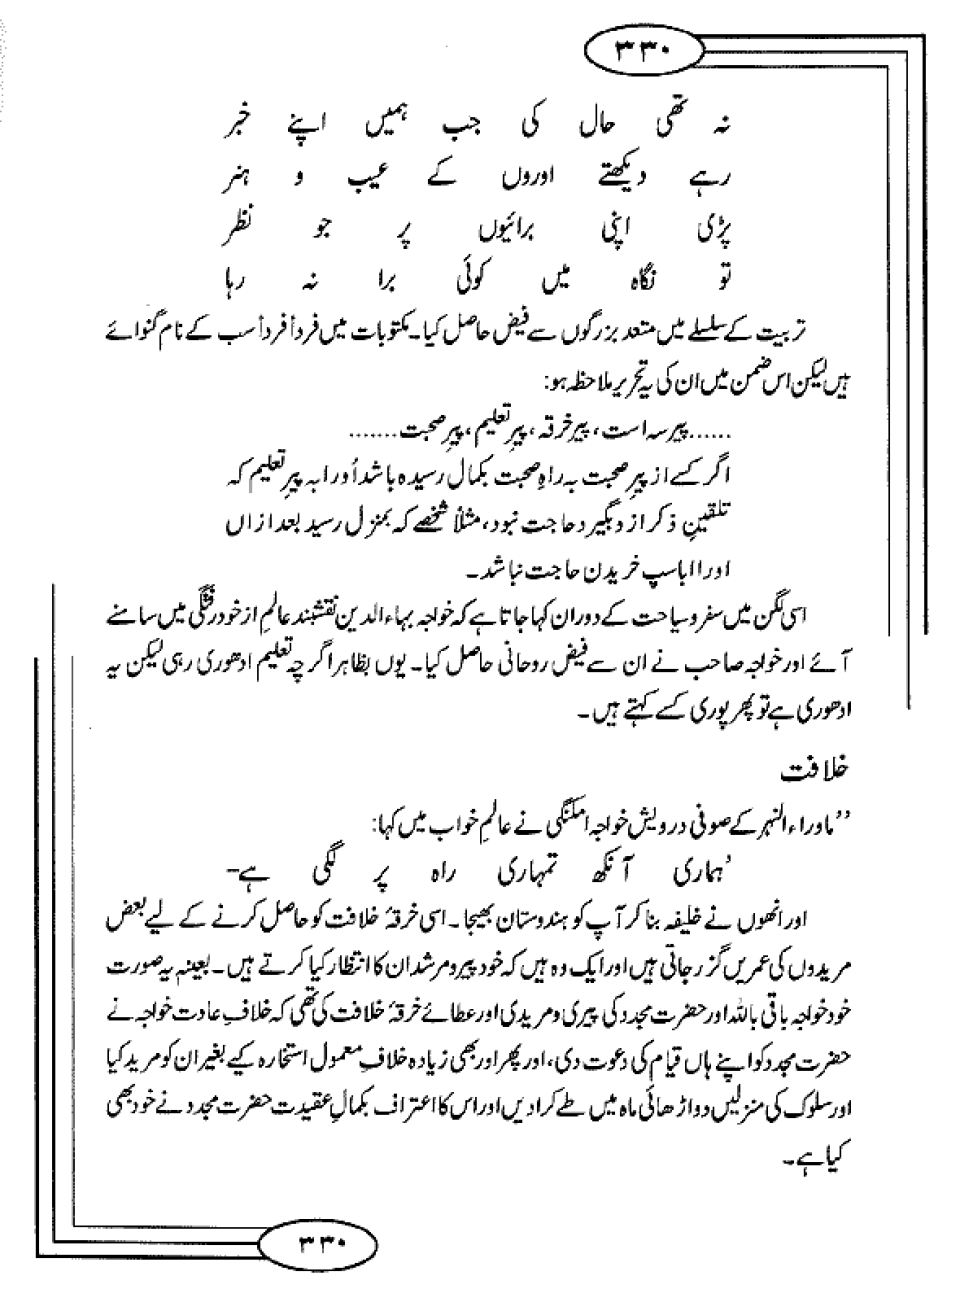 ۳۳۰
نہ تھی حال کی جب ہمیں اپنے خبر
رہے دیکھتے اوروں کے عیب و ہنر
پڑی اپنی برائیوں پر جو نظر
تو نگاہ میں کوئی برا نہ رہا
تربیت کے سلسلے میں متعد بزرگوں سے فیض حاصل کیا۔ مکتوبات میں فرداً فرداً سب کے نام گنوائے
ہیں لیکن اس ضمن میں ان کی یہ تحریر ملاحظہ ہو:
......پیر سہ است، پیر خرقہ، پیرِ تعلیم، پیرِ صحبت.......
اگر کسے از پیرِ صحبت بہ راہِ صحبت بکمال رسیدہ باشد أو را بہ پیرِ تعلیم کہ
تلقینِ ذکر از دیگیرد حاجت نبود، مثلاً شخصے کہ بمنزل رسید بعد ازاں
اورا اباسپ خریدن حاجت نباشد۔
اسی لگن میں سفر و سیاحت کے دوران کہا جاتا ہے کہ خواجہ بہاء الدین نقشبند عالمِ از خود رفتگی میں سامنے
آئے اور خواجہ صاحب نے ان سے فیض روحانی حاصل کیا۔ یوں بظاہر اگرچہ تعلیم ادھوری رہی لیکن یہ
ادھوری ہے تو پھر پوری کسے کہتے ہیں۔
خلافت
”ماوراء النہر کے صوفی درویش خواجہ امکنگی نے عالمِ خواب میں کہا:
'ہماری آنکھ تمہاری راہ پر لگی ہے–
اور انھوں نے خلیفہ بنا کر آپ کو ہندوستان بھیجا۔ اسی خرقۂ خلافت کو حاصل کرنے کے لیے بعض
مریدوں کی عمریں گزر جاتی ہیں اور ایک وہ ہیں کہ خود پیر و مرشد ان کا انتظار کیا کرتے ہیں۔ بعینہ یہ صورت
خود خواجہ باقی باللہ اور حضرت مجدد کی پیری و مریدی اور عطائے خرقۂ خلافت کی تھی کہ خلافِ عادت خواجہ نے
حضرت مجدد کو اپنے ہاں قیام کی دعوت دی، اور پھر اور بھی زیادہ خلافِ معمول استخارہ کیے بغیر ان کو مرید کیا
اور سلوک کی منزلیں دو اڑھائی ماہ میں طے کرا دیں اور اس کا اعتراف بکمالِ عقیدت حضرت مجدد نے خود بھی
کیا ہے۔
۳۳۰